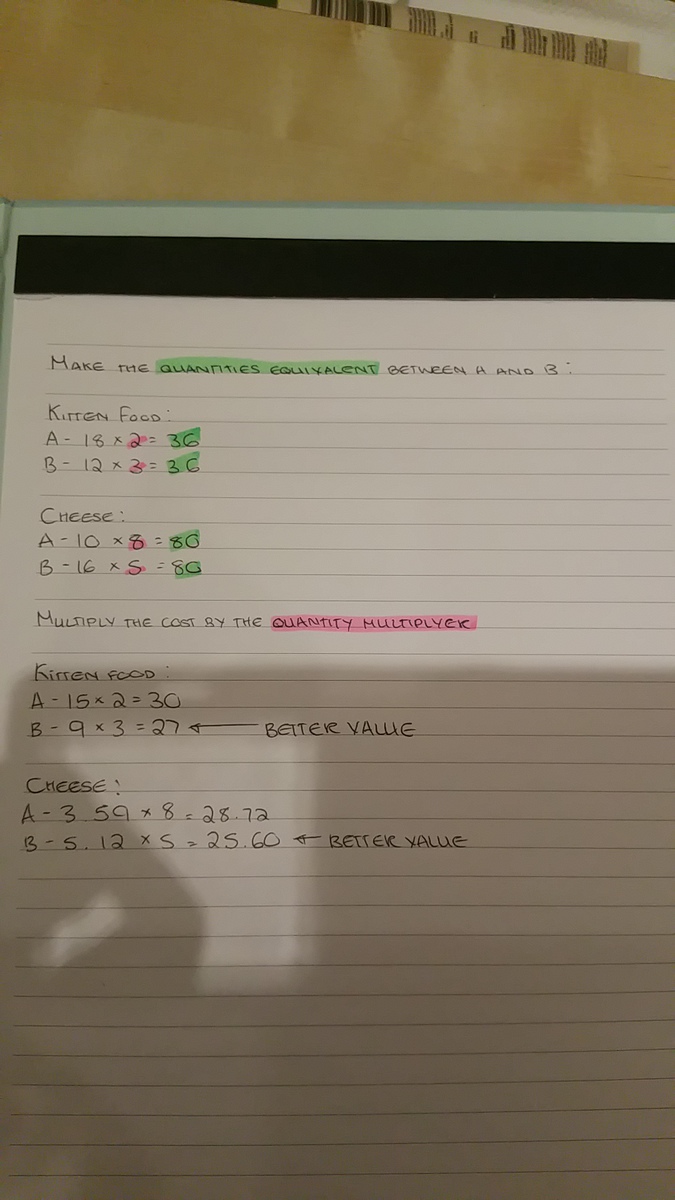 MAKE THE QUANTITIES EQUIVALENT BETWEEN A AND B:
KITTEN FOOD:
A - 18 × 2 = 36
B - 12 × 3 = 36
CHEESE:
A - 10 × 8 = 80
B - 16 × 5 = 80
MULTIPLY THE COST BY THE QUANTITY MULTIPLYER
KITTEN FOOD:
A - 15 × 2 = 30
B - 9 × 3 = 27 ← BETTER VALUE
CHEESE:
A - 3.59 × 8 = 28.72
B - 5.12 × 5 = 25.60 ← BETTER VALUE